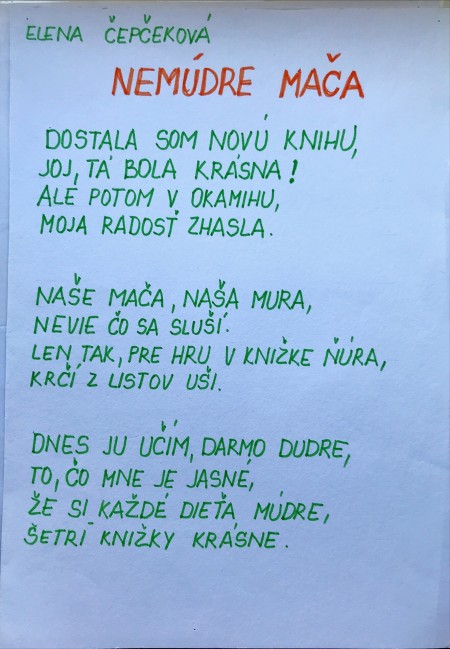 ELENA ČEPČEKOVÁ
NEMÚDRE MAČA
DOSTALA SOM NOVÚ KNIHU,
JOJ, TÁ BOLA KRÁSNA!
ALE POTOM V OKAMIHU,
MOJA RADOSŤ ZHASLA.
NAŠE MAČA, NAŠA MURA,
NEVIE ČO SA SLUŠÍ.
LEN TAK, PRE HRU V KNIŽKE ŇÚRA,
KRČÍ Z LISTOV UŠI.
DNES JU UČÍM, DARMO DUDRE,
TO, ČO MNE JE JASNÉ,
ŽE SI KAŽDÉ DIEŤA MÚDRE,
ŠETRÍ KNIŽKY KRÁSNE.